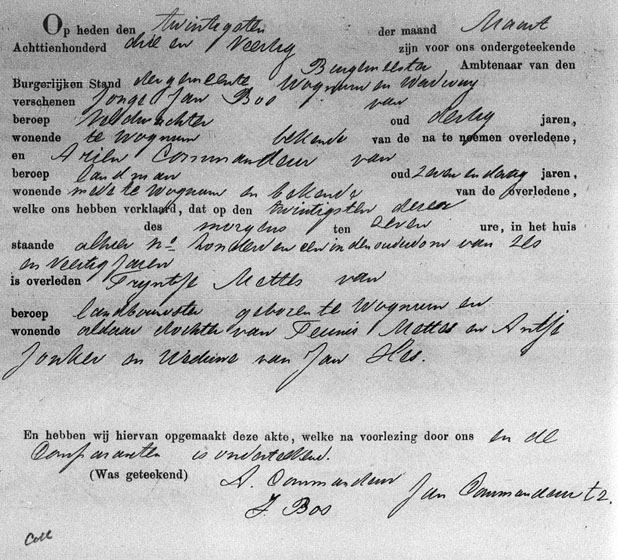 Op heden den twintigsten der maand Maart
Achttienhonderd drie en Veertig zijn voor ons ondergeteekende
Burgemeester Ambtenaar van den
Burgerlijken Stand der gemeente Wognum en Wadway
verschenen Jonge Jan Bos van
beroep Veldwachter oud dertig jaren,
wonende te Wognum bekende van de na te noemen overledene,
en Arien Commandeur van
beroep landman oud zeven en jaren,
wonende mede te Wognum en bekende van de overledene,
welke ons hebben verklaard, dat op den twintigsten dezer
des morgens ten zeven ure, in het huis
staande alhier no honderd en een in den ouderdom van zes
en Veertig Jaren
is overleden Tryntje Mettes van
beroep landbouwster geboren te Wognum en
wonende aldaar dochter van Teunis Mettes en Antje
Jonker en Weduwe van Jan
En hebben wij hiervan opgemaakt deze akte, welke na voorlezing door ons en de
Comparanten is onderteekend.
(Was geteekend) A. Commandeur Jan Commandeur
J. Bos
Coll